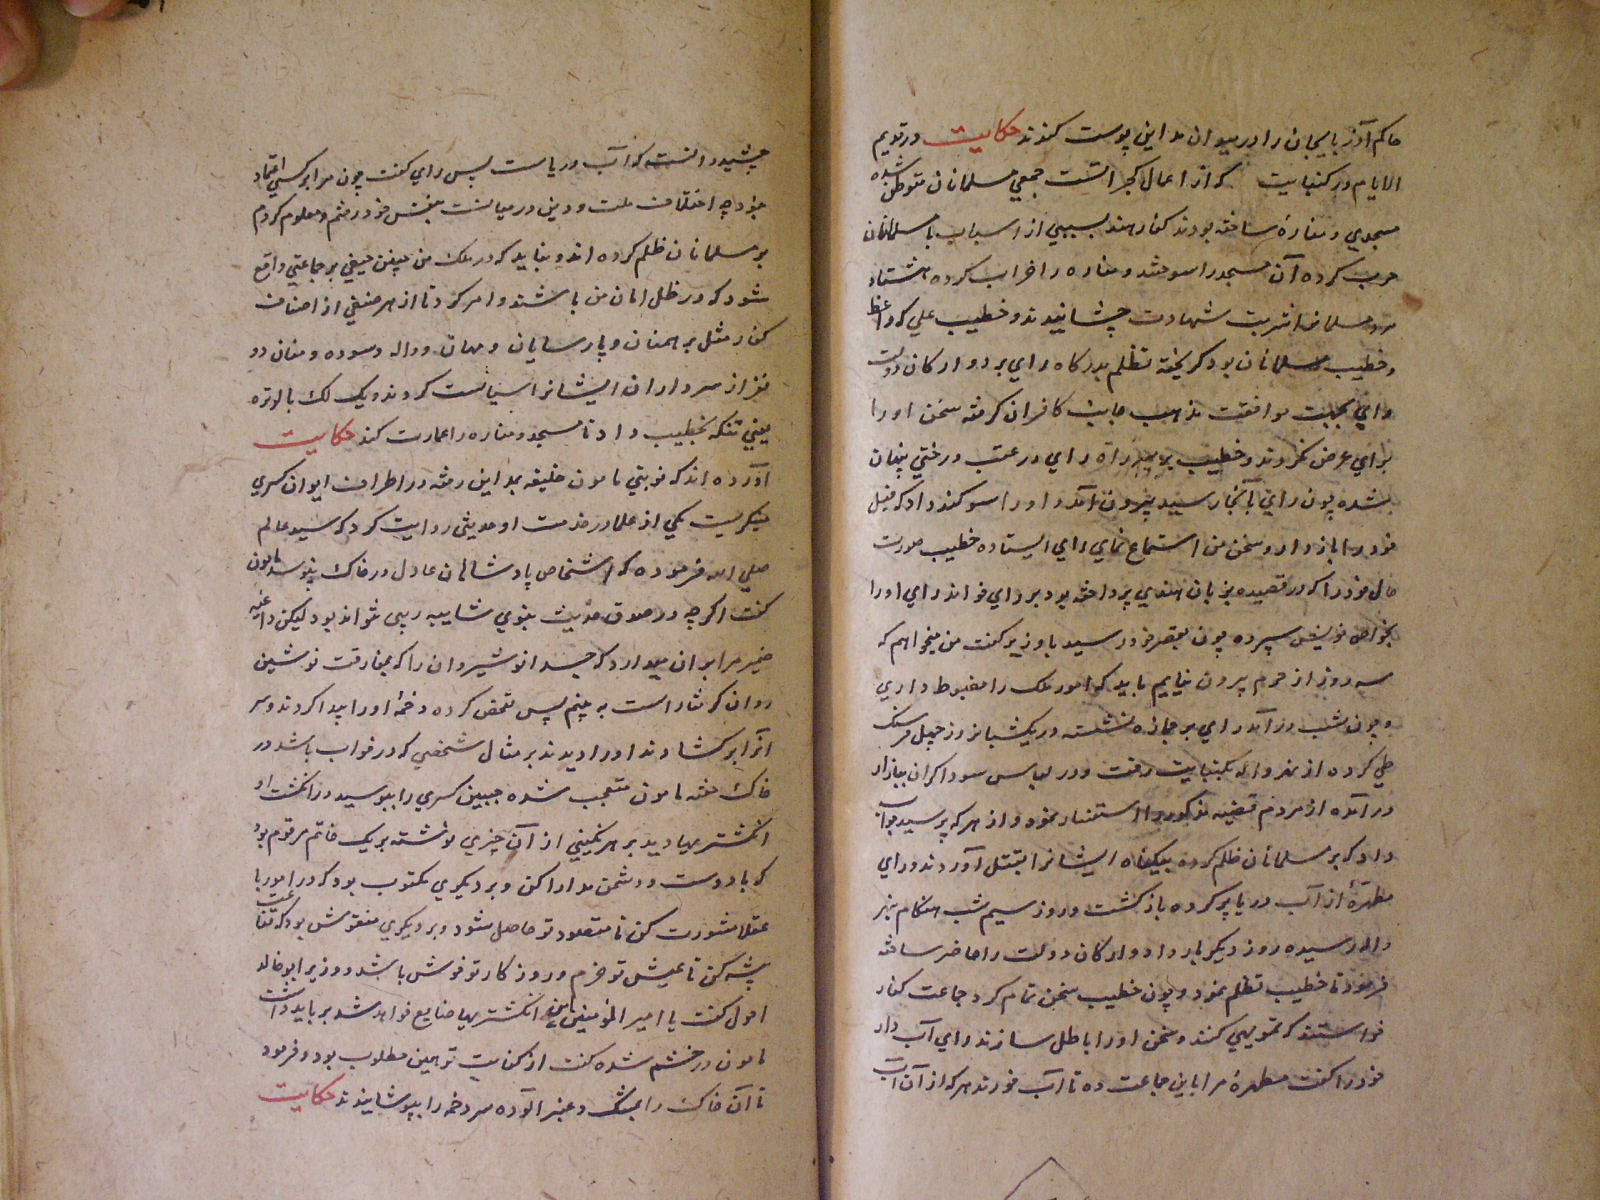 حاکم آذربایجان را در میدان مداین پوست کندند حکایت در قدیم
الایام در کنبایت که از اعمال کجراتست جمعی مسلمانان متوطن شده
مسجدی و مناره ساخته بودند کفار هند بسببی از اسباب با مسلمانان
حرب کرده آن مسجد را سوختند و مناره را خراب کرده هشتاد
مرد مسلمانرا شربت شهادت چشانیدند و خطیب علی که واعظ
و خطیب مسلمانان بود کریخته تظلم بدرکاه رای برد و ارکان دولت
رای بجهت موافقت مذهب جانب کافران کرفته سخن او را
برای عرض نکردند و خطیب بر سر راه رای در عقب درختی پنهان
شده چون رای بآنجا رسید بیرون آمد و او را سوکند داد که فیل
خود را باز دار و سخن من استماع نمای رای ایستاده خطیب صورت
حال خود را که در قصیده بزبان هندی پرداخته بود بر رای خواند رای او را
بخواص خویش سپرده چون بقصر خود رسید با وزیر کفت من میخواهم که
سه روز از حرم بیرون نیایم باید که امور ملک را مضبوط داری
و چون شب درآمد رای بر جمازه نشسته در یکشبانروز چهل فرسنک
طی کرده از نهرواله بکنبایت رفت و در لباس سوداکران ببازار
در آمده از مردم قضیه مذکور را استفسار نمود و از هر که پرسید جواب
داد که بر مسلمانان ظلم کرده بیکناه ایشانرا بقتل آوردند و رای
مطهره از آب دریا پر کرده باز کشت و روز سیم شب هنکام بنهر
واله رسیده روز دیکر بار داد و ارکان دولت را حاضر ساخته
فرمود تا خطیب تظلم نمود و چون خطیب سخن تمام کرد جماعت کفار
خواستند که تمویهی کنند و سخن او را باطل سازند رای آب دار
خود را کفت مطهره مرا باین جماعت ده تا آب خورند هر که از آن آب
چشید دانست که آب دریاست پس رای کفت چون مرا بر کسی اعتماد
نبود چه اختلاف ملت و دین در میانست بنفس خود رفتم و معلوم کردم
بر مسلمانان ظلم کرده اند و نباید که در ملک من چنین حیفی بر جماعتی واقع
شود که در ظل امان من باشند و امر کرد تا از هر صنفی از اصناف
کفار مثل برهمنان و پارسایان و مهان و واله و سوده و مغان دو
نفر از سرداران ایشانرا سیاست کردند و یک لک بالوتره
یعنی تنکه بخطیب داد تا مسجد و مناره را عمارت کند حکایت
آورده اند که نوبتی مامون خلیفه بمداین رفته در اطراف ایوان کسری
میکریست یکی از علما در خدمت او حدیثی روایت کرد که سید عالم
صلی الله فرموده که اشخاص پادشاهان عادل در خاک نپوسد مامون
کفت اکرچه در صدق حدیث نبوی شایبه ریبی نتواند بود لیکن داعیه
ضمیر مرا بران میدارد که جسد انوشیروان را که بمفارقت نوشین
روان کرفتار است به بینم پس تفحص کرده دخمه او را پیدا کردند و سر
آنرا بر کشادند او را دیدند بر مثال شخصی که در خواب باشد در
خاک خفته مامون متعجب شده جبین کسری را ببوسید و در انکشت او
انکشتریها دید بر هر نکینی از آن چیزی نوشته بر یک خاتم مرقوم بود
که با دوست و دشمن مدارا کن و بر دیکری مکتوب بود که در امور با
عقلا مشورت کن تا مقصود تو حاصل شود و بر دیکری منقوش بود که قناعت
پیشه کن تا عیش تو خرم و روز کار تو خوش باشد و وزیر ابو خالد
احول کفت یا امیر المؤمنین این انکشتریها ضایع خواهد شد بر باید داشت
مامون در خشم شده کفت از کفایت تو همین مطلوب بود و فرمود
تا آن خاک را بمشک و عنبر آلوده سر دخمه را بپوشانیدند حکایت